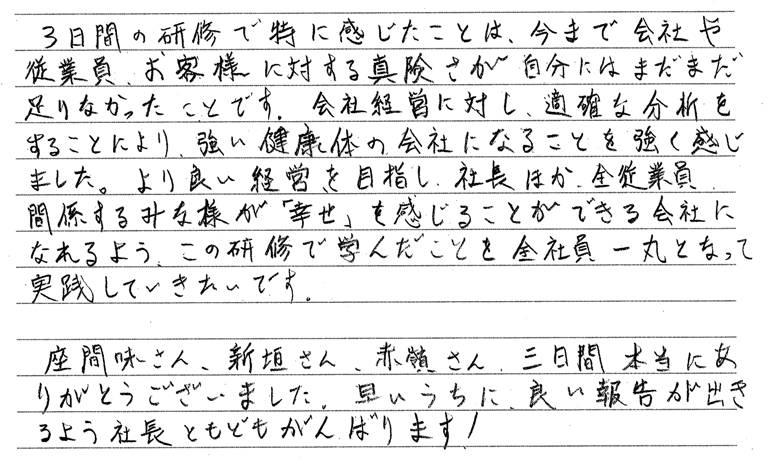 3日間の研修で特に感じたことは、今まで会社や
従業員、お客様に対する真険さが自分にはまだまだ
足りなかったことです。会社経営に対し、適確な分析を
することにより、強い健康体の会社になることを強く感じ
ました。より良い経営を目指し、社長ほか、全従業員、
関係するみな様が「幸せ」を感じることができる会社に
なれるよう、この研修で学んだことを全社員一丸となって
実践していきたいです。
座間味さん、新垣さん、赤嶺さん、三日間本当にあ
りがとうございました。早いうちに、良い報告が出き
るよう社長ともどもがんばります!